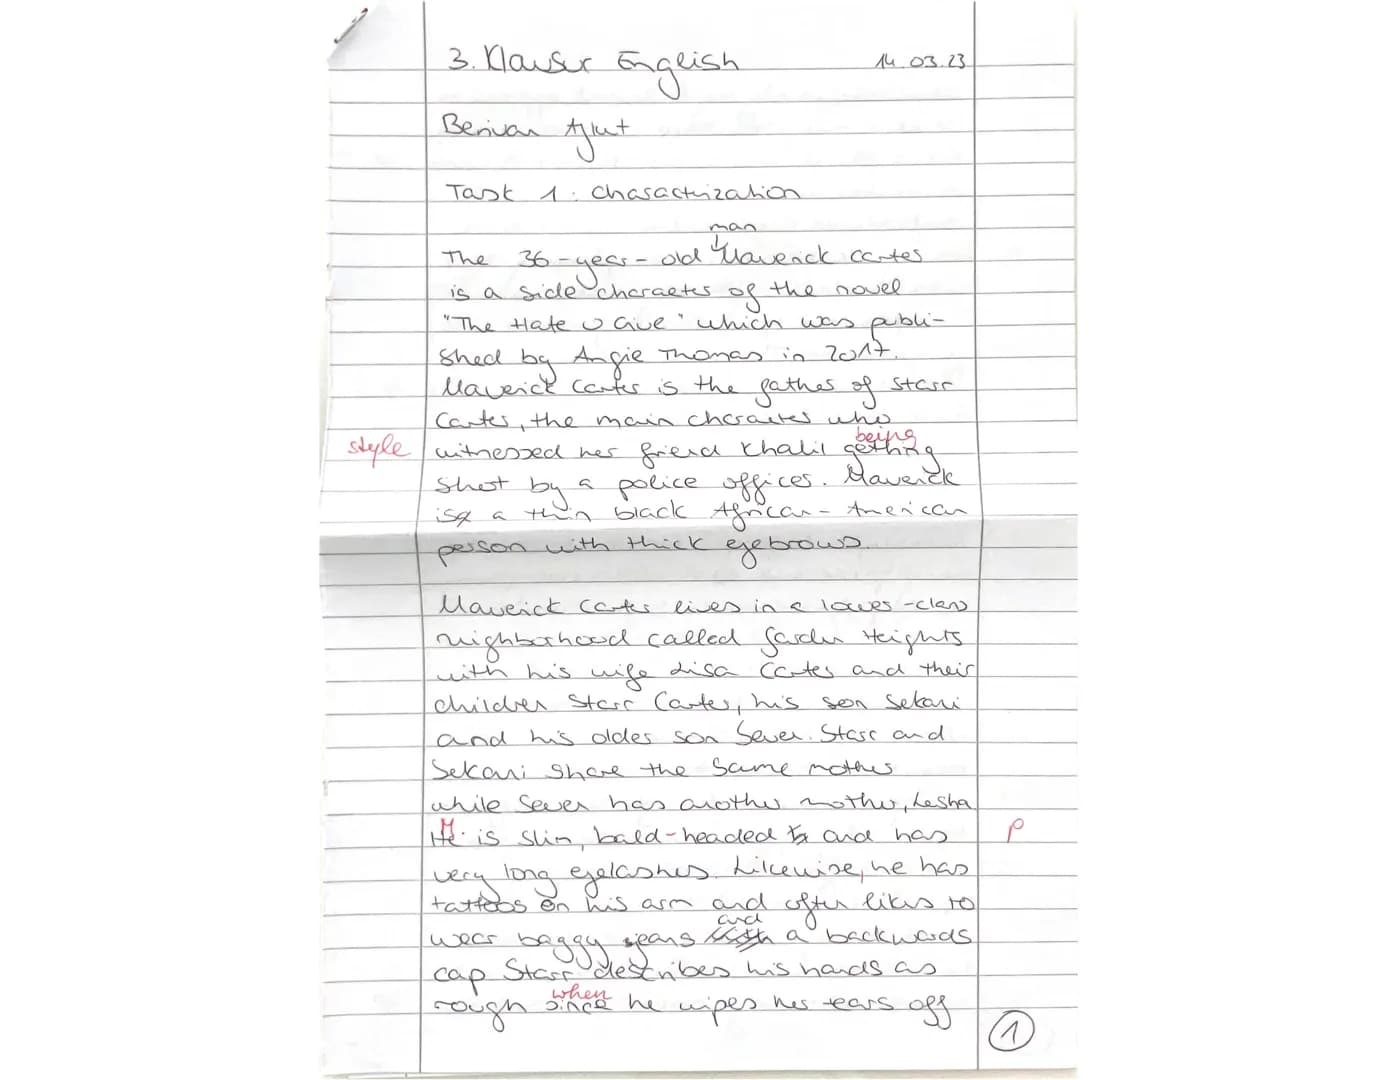 3. Klausur English 14.03.23
Berivan
Task 1: Charactrization
man
The 36-year-old Maverick Carter
is a side character of the novel
"The Hate U Give" which was publi-
shed by Angie Thomas in 2017.
Maverick Carter is the father of Starr
Carter, the main character who
being
style witnessed her friend Khalil getting
shot by a police officer. Maverick
is a thin black African-American
person with thick eyebrows.
Maverick Carter lives in a lower-class
neighborhood called Garden Heights
with his wife Lisa Carter and their
children Starr Carter, his son Sekani
and his older son Seven. Starr and
Sekani share the same mother
while Seven has another mother, Iesha
M. is slim, bald-headed and has P
very long eyelashes. Likewise, he has
tattoos on his arm and often likes to
and
wear baggy jeans a backwards
cap Starr describes his hands as
when
rough since he wipes her tears off
1